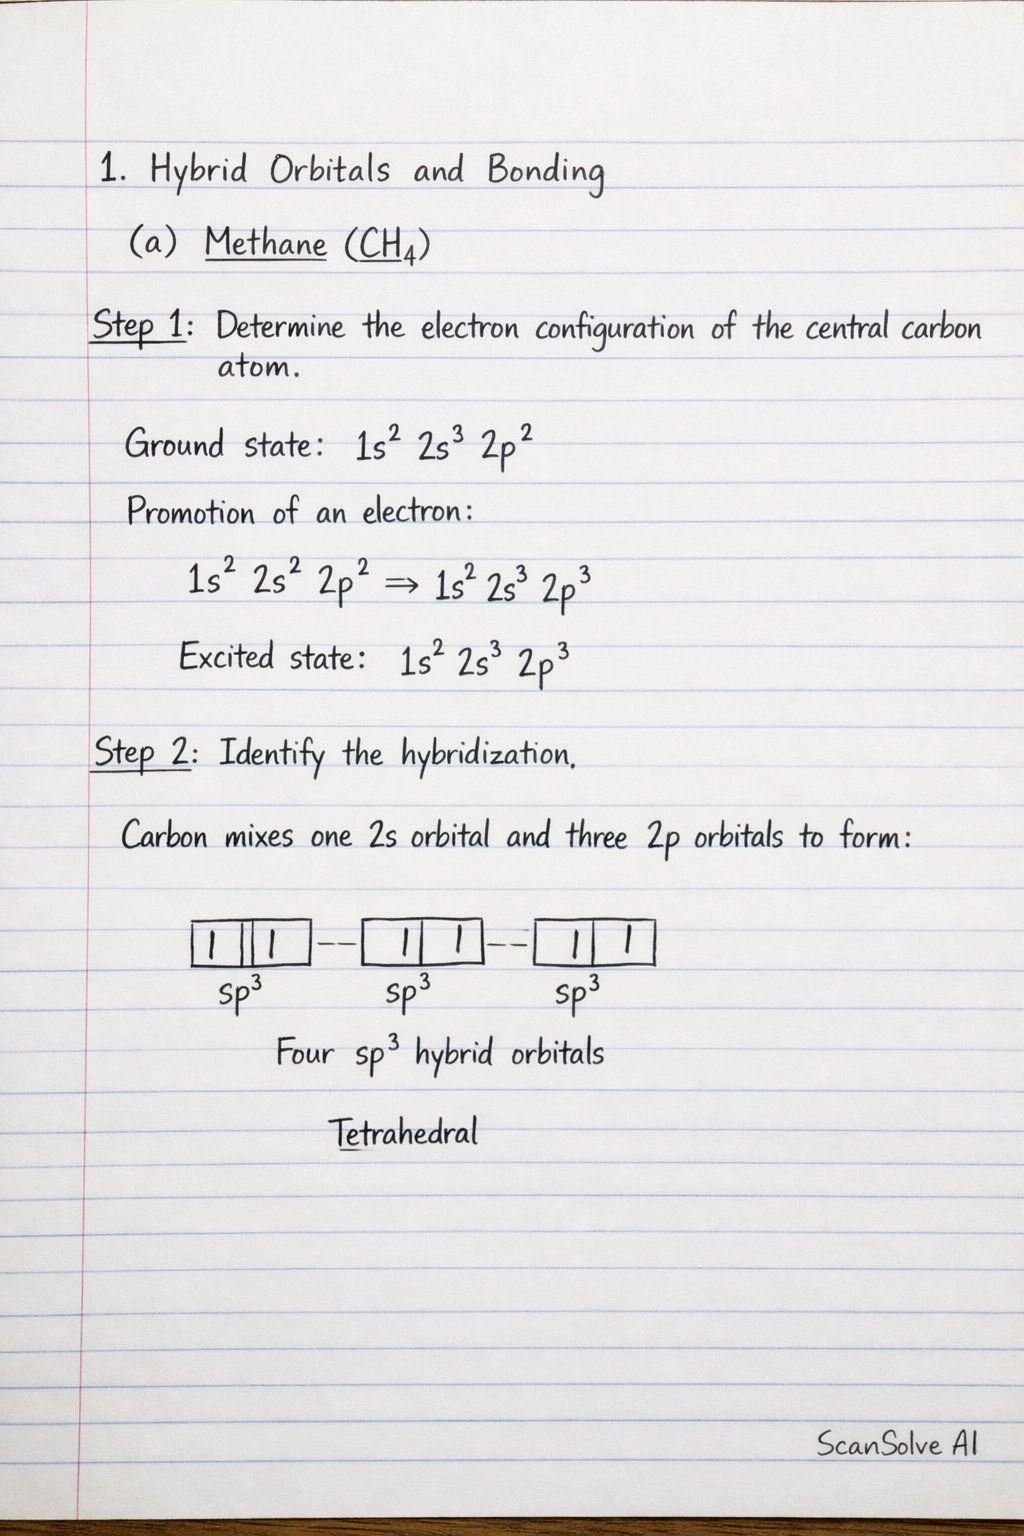 1. Hybrid Orbitals and Bonding
(a) Methane (CH₄)
Step 1: Determine the electron configuration of the central carbon
atom.
Ground state: 1s² 2s³ 2p²
Promotion of an electron:
1s² 2s² 2p² ⇒ 1s² 2s³ 2p³
Excited state: 1s² 2s³ 2p³
Step 2: Identify the hybridization.
Carbon mixes one 2s orbital and three 2p orbitals to form:
sp³ sp³ sp³
Four sp³ hybrid orbitals
Tetrahedral
ScanSolve AI